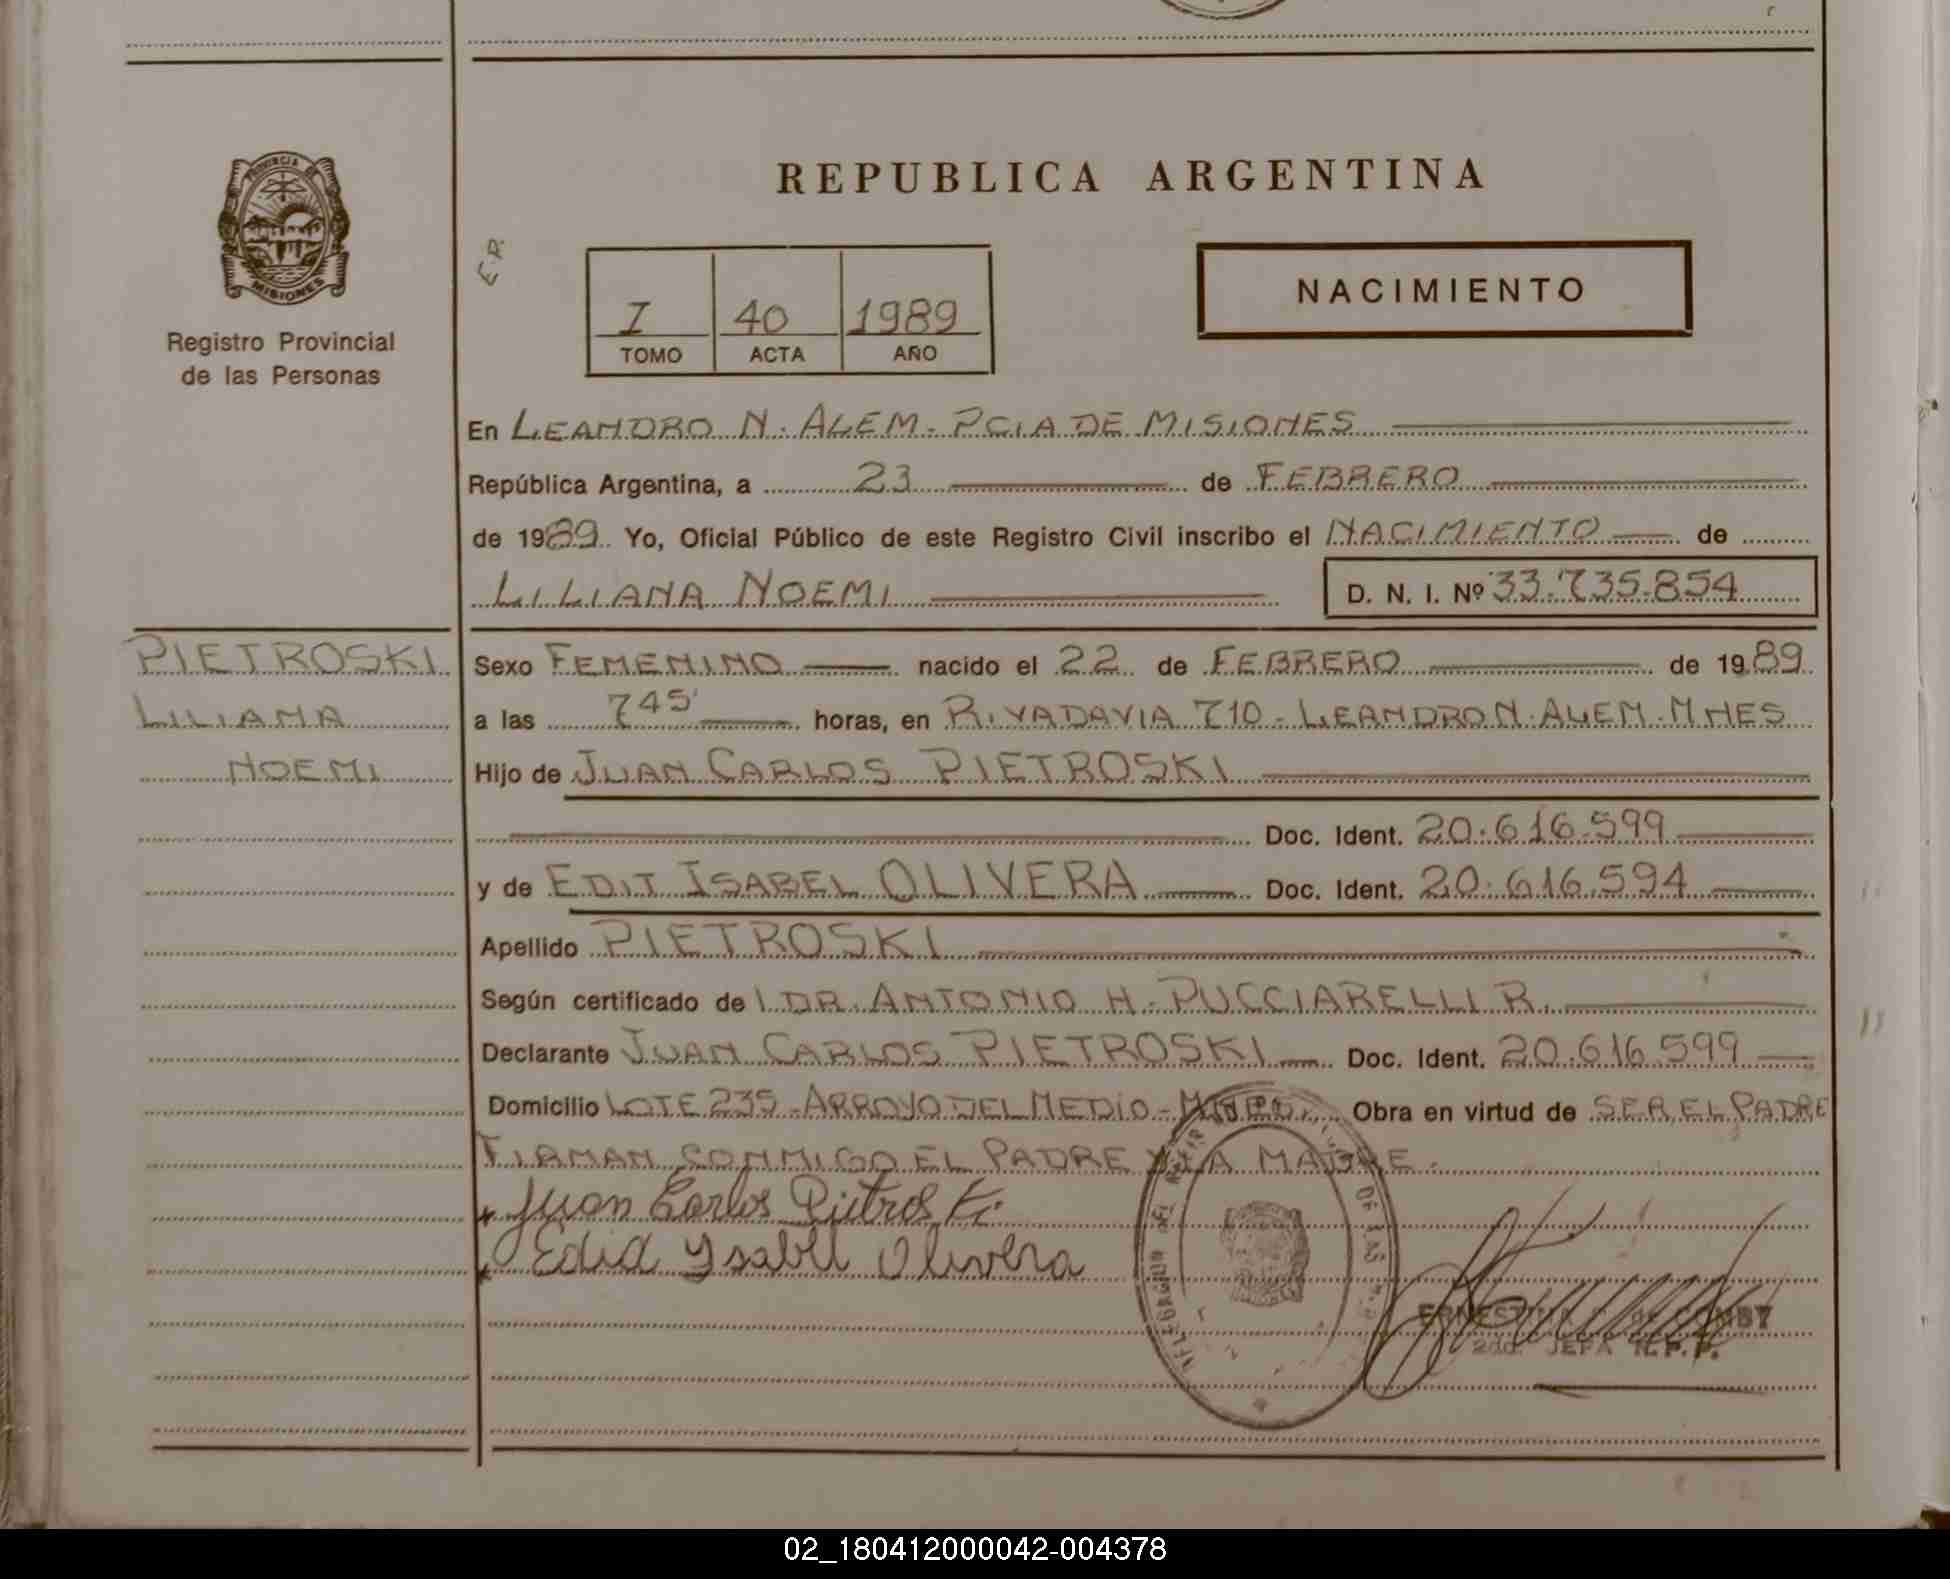 PROVINCIA DE
MISIONES
Registro Provincial
de las Personas
REPUBLICA ARGENTINA
E.R.
I 40 1989
TOMO ACTA AÑO
NACIMIENTO
En LEANDRO N. ALEM. PCIA DE MISIONES
República Argentina, a 23 de FEBRERO
de 1989 Yo, Oficial Público de este Registro Civil inscribo el NACIMIENTO de
LILIANA NOEMI D. N. I. Nº 33.735.854
PIETROSKI
LILIANA
NOEMI
Sexo FEMENINO nacido el 22 de FEBRERO de 1989
a las 745' horas, en RIVADAVIA 710 - LEANDRO N. ALEM. MNES
Hijo de JUAN CARLOS PIETROSKI
Doc. Ident. 20.616.599
y de EDIT ISABEL OLIVERA Doc. Ident. 20.616.594
Apellido PIETROSKI
Según certificado de DR. ANTONIO H. PUCCIARELLI R.
Declarante JUAN CARLOS PIETROSKI Doc. Ident. 20.616.599
Domicilio LOTE 235 - ARROYO DEL MEDIO - Obra en virtud de SER EL PADRE
FIRMAN CONMIGO EL PADRE Y LA MADRE.
Juan Carlos Pietroski
Edid Ysabel Olivera
DE LAS
ERNESTINA
2da. JEFA R.P.P.
02_180412000042-004378